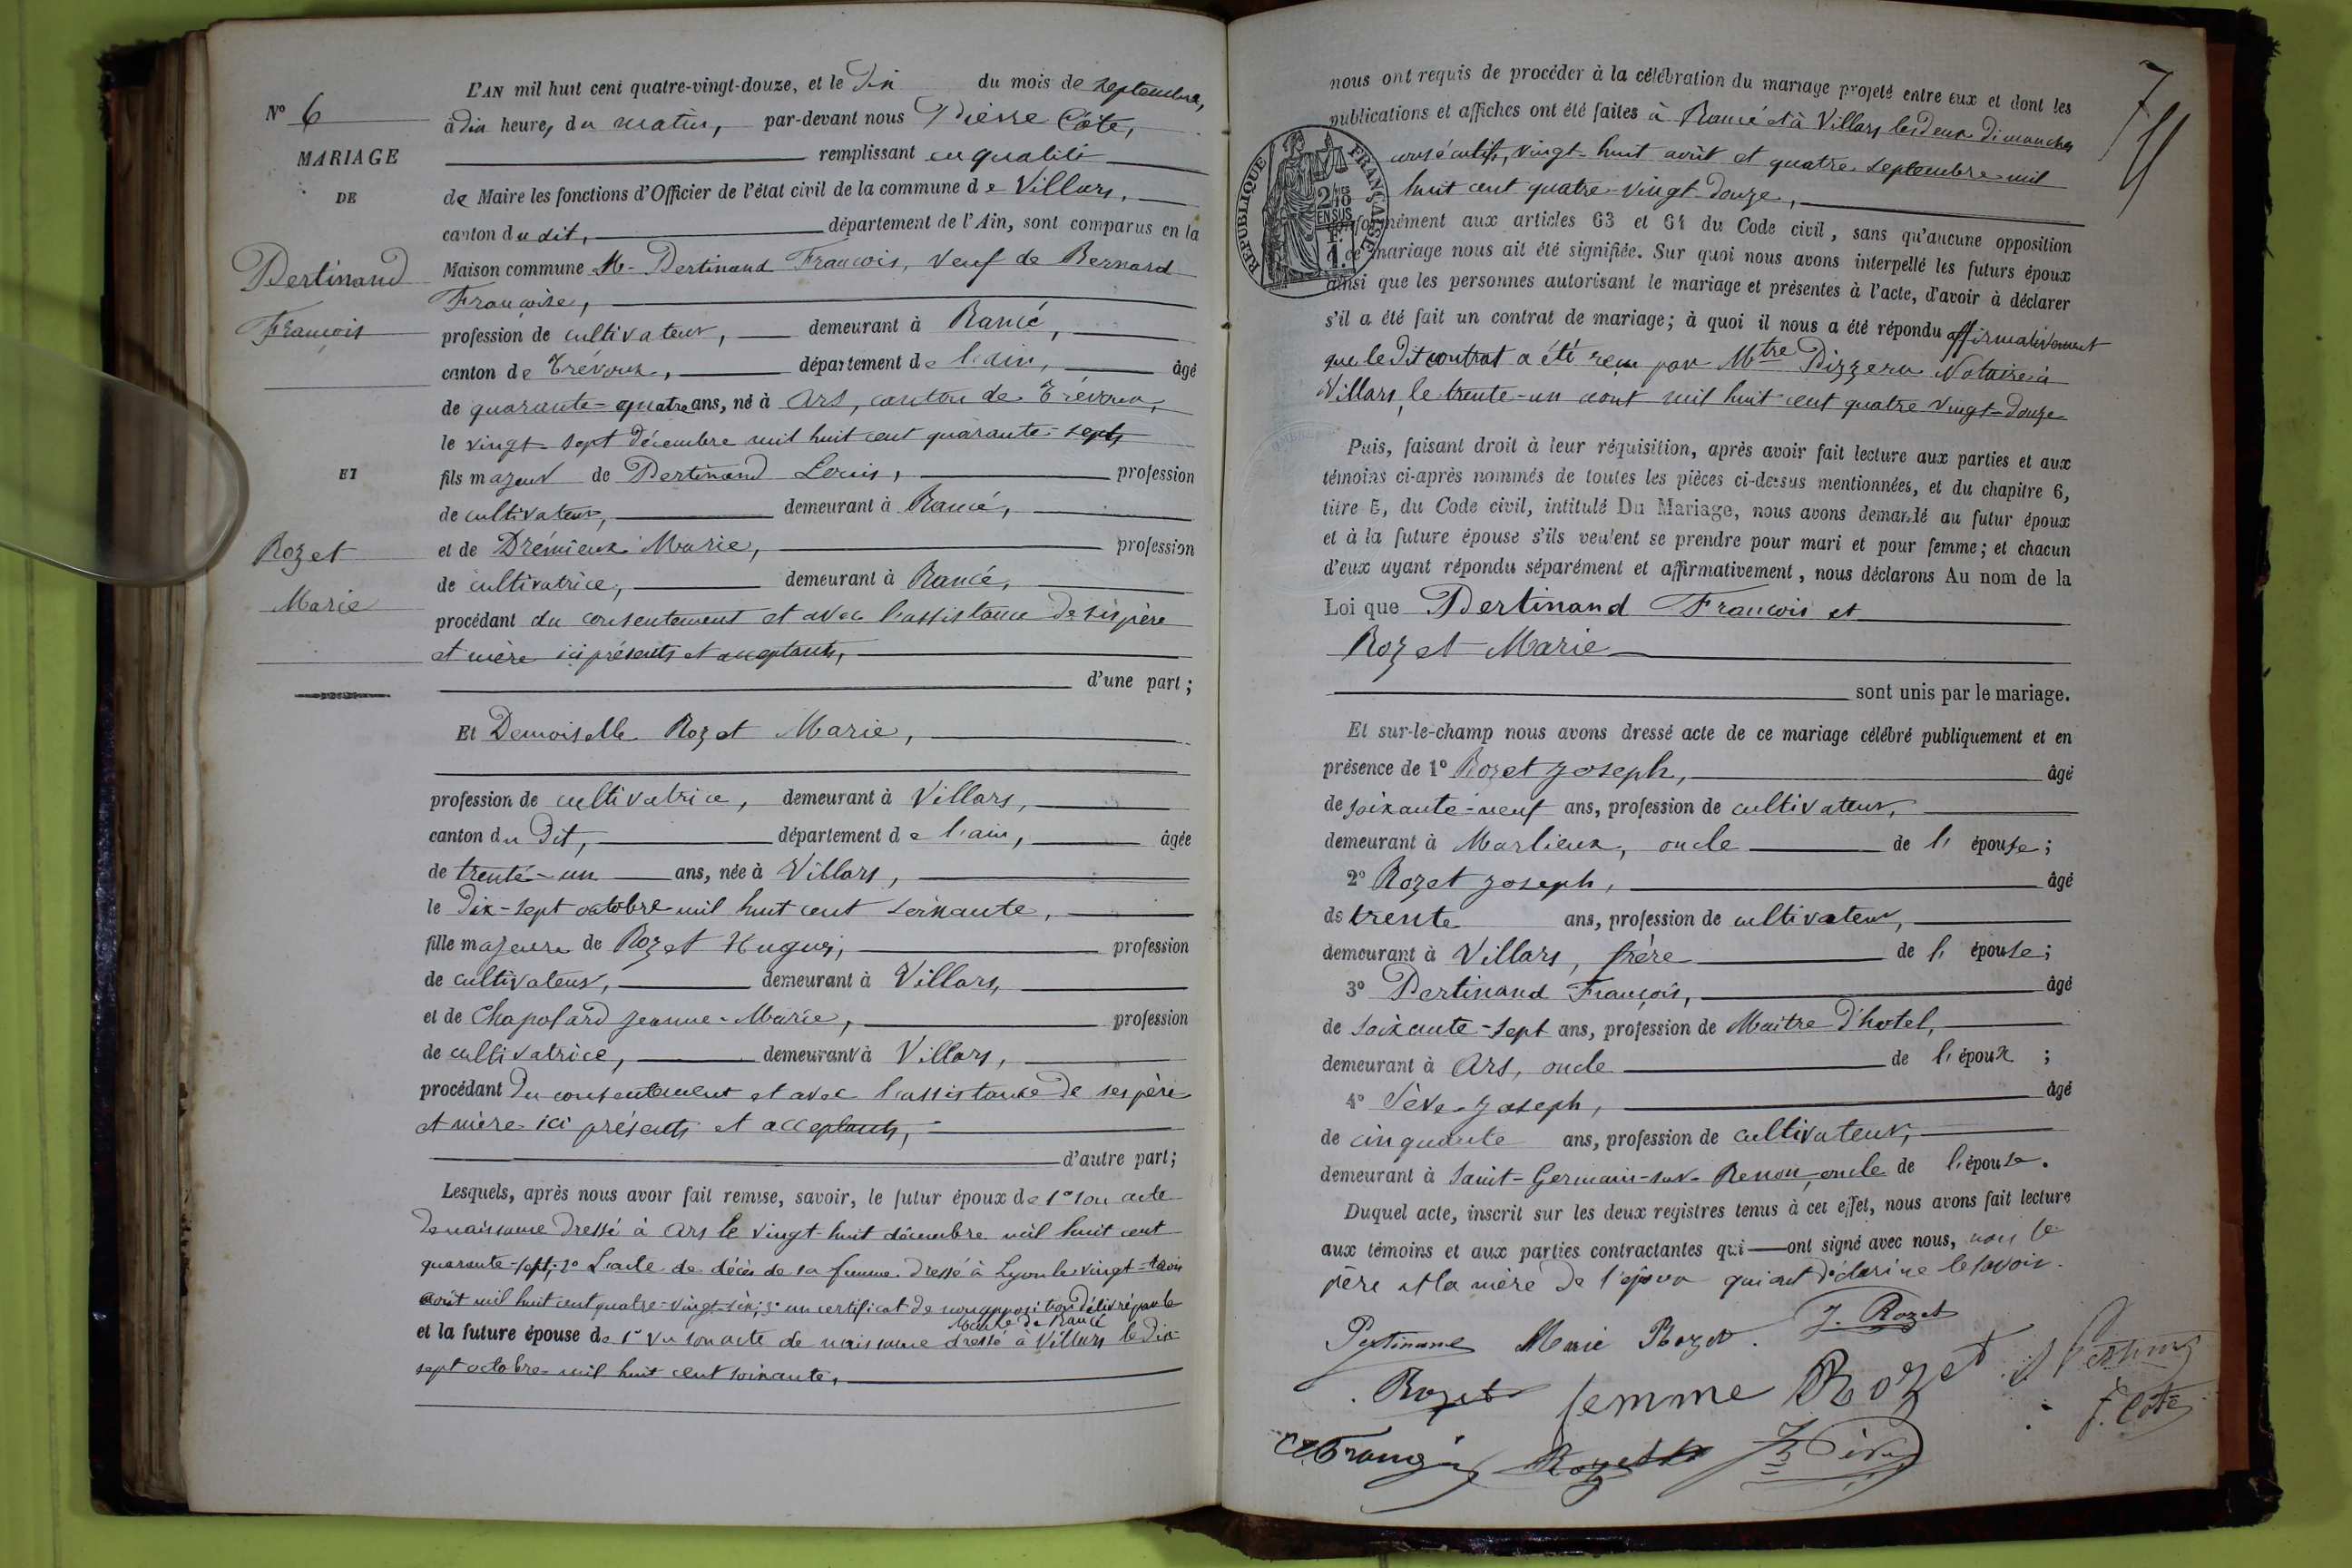 L'AN mil huit cent quatre-vingt-douze, et le dix du mois de septembre,
N° 6
à dix heure, du matin, par-devant nous Pierre Côte,
MARIAGE
remplissant en qualité
DE
de Maire les fonctions d'Officier de l'état civil de la commune de Villars,
canton du dit, département de l'Ain, sont comparus en la
Pertinand
Maison commune M. Pertinand François, veuf de Bernard
Françoise,
François
profession de cultivateur, demeurant à Rancé,
canton de Trévoux, département de l'ain, âgé
de quarante-quatre ans, né à Ars, canton de Trévoux,
le vingt-sept décembre mil huit cent quarante-sept,
ET
fils majeur de Pertinand Louis, profession
de cultivateur, demeurant à Rancé,
Rozet
et de Drémieux Marie, profession
de cultivatrice, demeurant à Rancé,
Marie
procédant du consentement et avec l'assistance de ses père
et mère ici présents et acceptants,
d'une part;
Et Demoiselle Rozet Marie,
profession de cultivatrice, demeurant à Villars,
canton du dit, département de l'ain, âgée
de trente-un ans, née à Villars,
le dix-sept octobre mil huit cent soixante,
fille majeure de Rozet Hugues, profession
de cultivateur, demeurant à Villars,
et de Chapolard Jeanne-Marie, profession
de cultivatrice, demeurant à Villars,
procédant du consentement et avec l'assistance de ses père
et mère ici présents et acceptants,
d'autre part;
Lesquels, après nous avoir fait remise, savoir, le futur époux de 1° son acte
de naissance dressé à Ars le vingt-huit décembre mil huit cent
quarante-sept; 2° L'acte de décès de sa femme dressé à Lyon le vingt-trois
août mil huit cent quatre-vingt-six; 3° un certificat de non opposition délivré par le
Maire de Rancé
et la future épouse de 1° Vu son acte de naissance dressé à Villars le dix-
sept octobre mil huit cent soixante,
7
nous ont requis de procéder à la célébration du mariage projeté entre eux et dont les
publications et affiches ont été faites à Rancé et à Villars les deux dimanches
consécutifs, vingt-huit août et quatre septembre mil
huit cent quatre-vingt-douze,
RÉPUBLIQUE FRANÇAISE
2/10 EN SUS
conformément aux articles 63 et 64 du Code civil, sans qu'aucune opposition
à ce mariage nous ait été signifiée. Sur quoi nous avons interpellé les futurs époux
ainsi que les personnes autorisant le mariage et présentes à l'acte, d'avoir à déclarer
s'il a été fait un contrat de mariage; à quoi il nous a été répondu affirmativement
que le dit contrat a été reçu par Mtre Pizzera Notaire à
Villars, le trente-un aout mil huit cent quatre vingt-douze
Puis, faisant droit à leur réquisition, après avoir fait lecture aux parties et aux
témoins ci-après nommés de toutes les pièces ci-dessus mentionnées, et du chapitre 6,
titre 5, du Code civil, intitulé Du Mariage, nous avons demandé au futur époux
et à la future épouse s'ils veulent se prendre pour mari et pour femme; et chacun
d'eux ayant répondu séparément et affirmativement, nous déclarons Au nom de la
Loi que Pertinand François et
Rozet Marie
sont unis par le mariage.
Et sur-le-champ nous avons dressé acte de ce mariage célébré publiquement et en
présence de 1° Rozet Joseph, âgé
de soixante-neuf ans, profession de cultivateur,
demeurant à Marlieux, oncle de l' épouse;
2° Rozet Joseph, âgé
de trente ans, profession de cultivateur,
demeurant à Villars, frère de l' épouse;
3° Pertinand François, âgé
de soixante-sept ans, profession de Maître d'hotel,
demeurant à Ars, oncle de l' époux;
4° Sève Joseph, âgé
de cinquante ans, profession de cultivateur,
demeurant à Saint-Germain-sur-Renon, oncle de l'épouse.
Duquel acte, inscrit sur les deux registres tenus à cet effet, nous avons fait lecture
aux témoins et aux parties contractantes qui ont signé avec nous, non le
père et la mère de l'époux qui ont déclaré ne le savoir.
Pertinand Marie Rozet. J. Rozet
Rozet femme Rozet
P. Côte